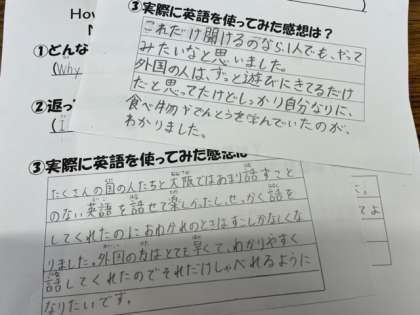 Ho
N
①どんな
(Why
②返っ
(I
③実際に英語を使ってみた感想は？
これだけ聞けるのなら、1人でも、やって
みたいなと思いました。
外国の人は、ずっと遊びにきてるだけ
だと思ってたけどしっかり自分なりに、
食べ物やでんとうを学んでいたのが、
わかりました。
③実際に英語を使ってみた感想は
たくさんの国の人たちと大阪ではあまり話すこと
のない英語を話せて楽しかったし、せっかく話を
してくれたのにおわかれのときはすこしかなしくな
りました。外国の方はとても早くて、わかりやすく
話してくれたのでそれだけしゃべれるように
なりたいです。
こ。
てよ